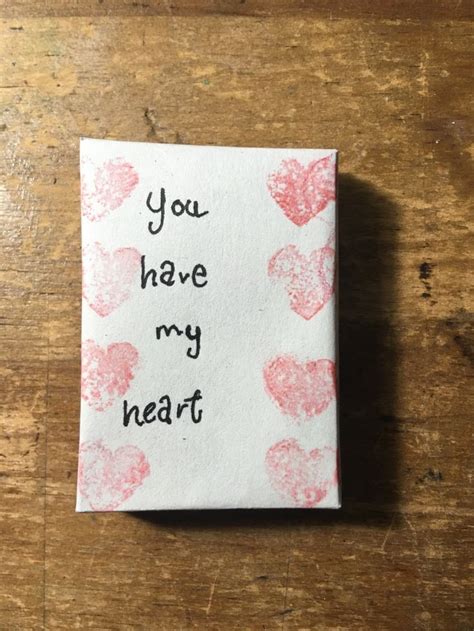 you
have
my
heart